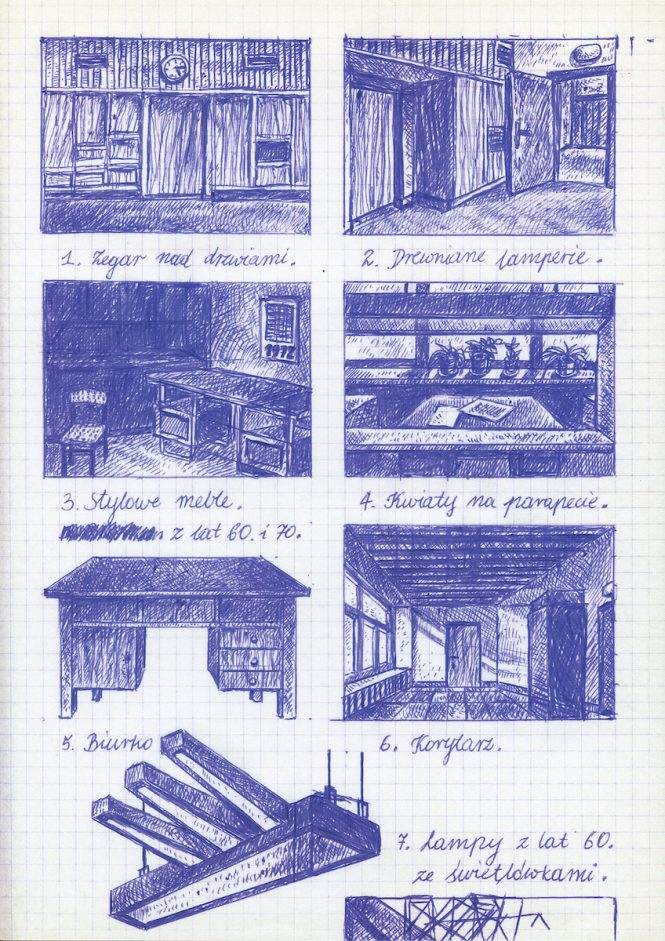 1. Zegar nad drzwiami.
2. Drewniane lamperie.
1972
3. Stylowe meble.
z lat 60. i 70.
4. Kwiaty na parapecie.
5. Biurko
6. Korytarz.
7. Lampy z lat 60.
ze świetlówkami.